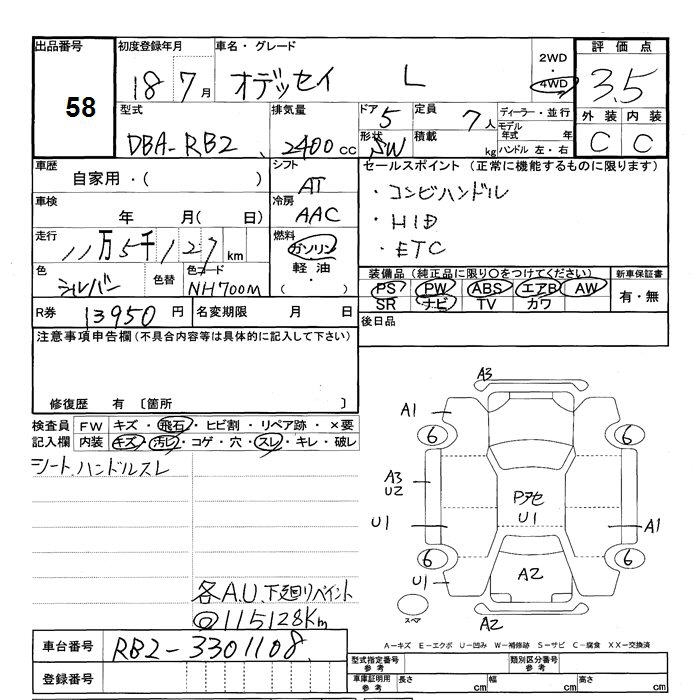 出品番号
58
初度登録年月
18 7月
車名・グレード
オデッセイ L
2WD
・
4WD
評価点
3.5
外装 内装
C C
型式
DBA-RB2
排気量
2400cc
ドア 5
形状 SW
定員 7人
積載 kg
ディーラー・並行
モデル年式 年
ハンドル 左・右
車歴
自家用・( )
シフト
AT
車検
年 月( 日)
冷房
AAC
走行
11万5千127km
燃料
ガソリン
軽油
( ・ )
色
シルバー
色替
色コード
NH700M
セールスポイント (正常に機能するものに限ります)
・コンビハンドル
・HID
・ETC
装備品 (純正品に限り○をつけてください)
PS PW ABS エアB AW
SR ナビ TV カワ
新車保証書
有・無
R券 13950円
名変期限 月 日
後日品
注意事項申告欄(不具合内容等は具体的に記入して下さい)
修復歴 有 〔箇所 〕
検査員記入欄
FW キズ・飛石・ヒビ割・リペア跡・×要
内装 キズ・汚レ・コゲ・穴・スレ・キレ・破レ
シート、ハンドルスレ
各A.U. 下廻リペイント
@115128Km
車台番号
RB2-3301108
登録番号
A3
A1
6 6
A3
U2
Pアセ
U1
U1 A1
6 6
U1
A2
スペア
A2
A-キズ E-エクボ U-凹み W-補修跡 S-サビ C-腐食 XX-交換済
型式指定番号
参考
類別区分番号
参考
車庫証明用
参考
長さ cm 幅 cm 高さ cm